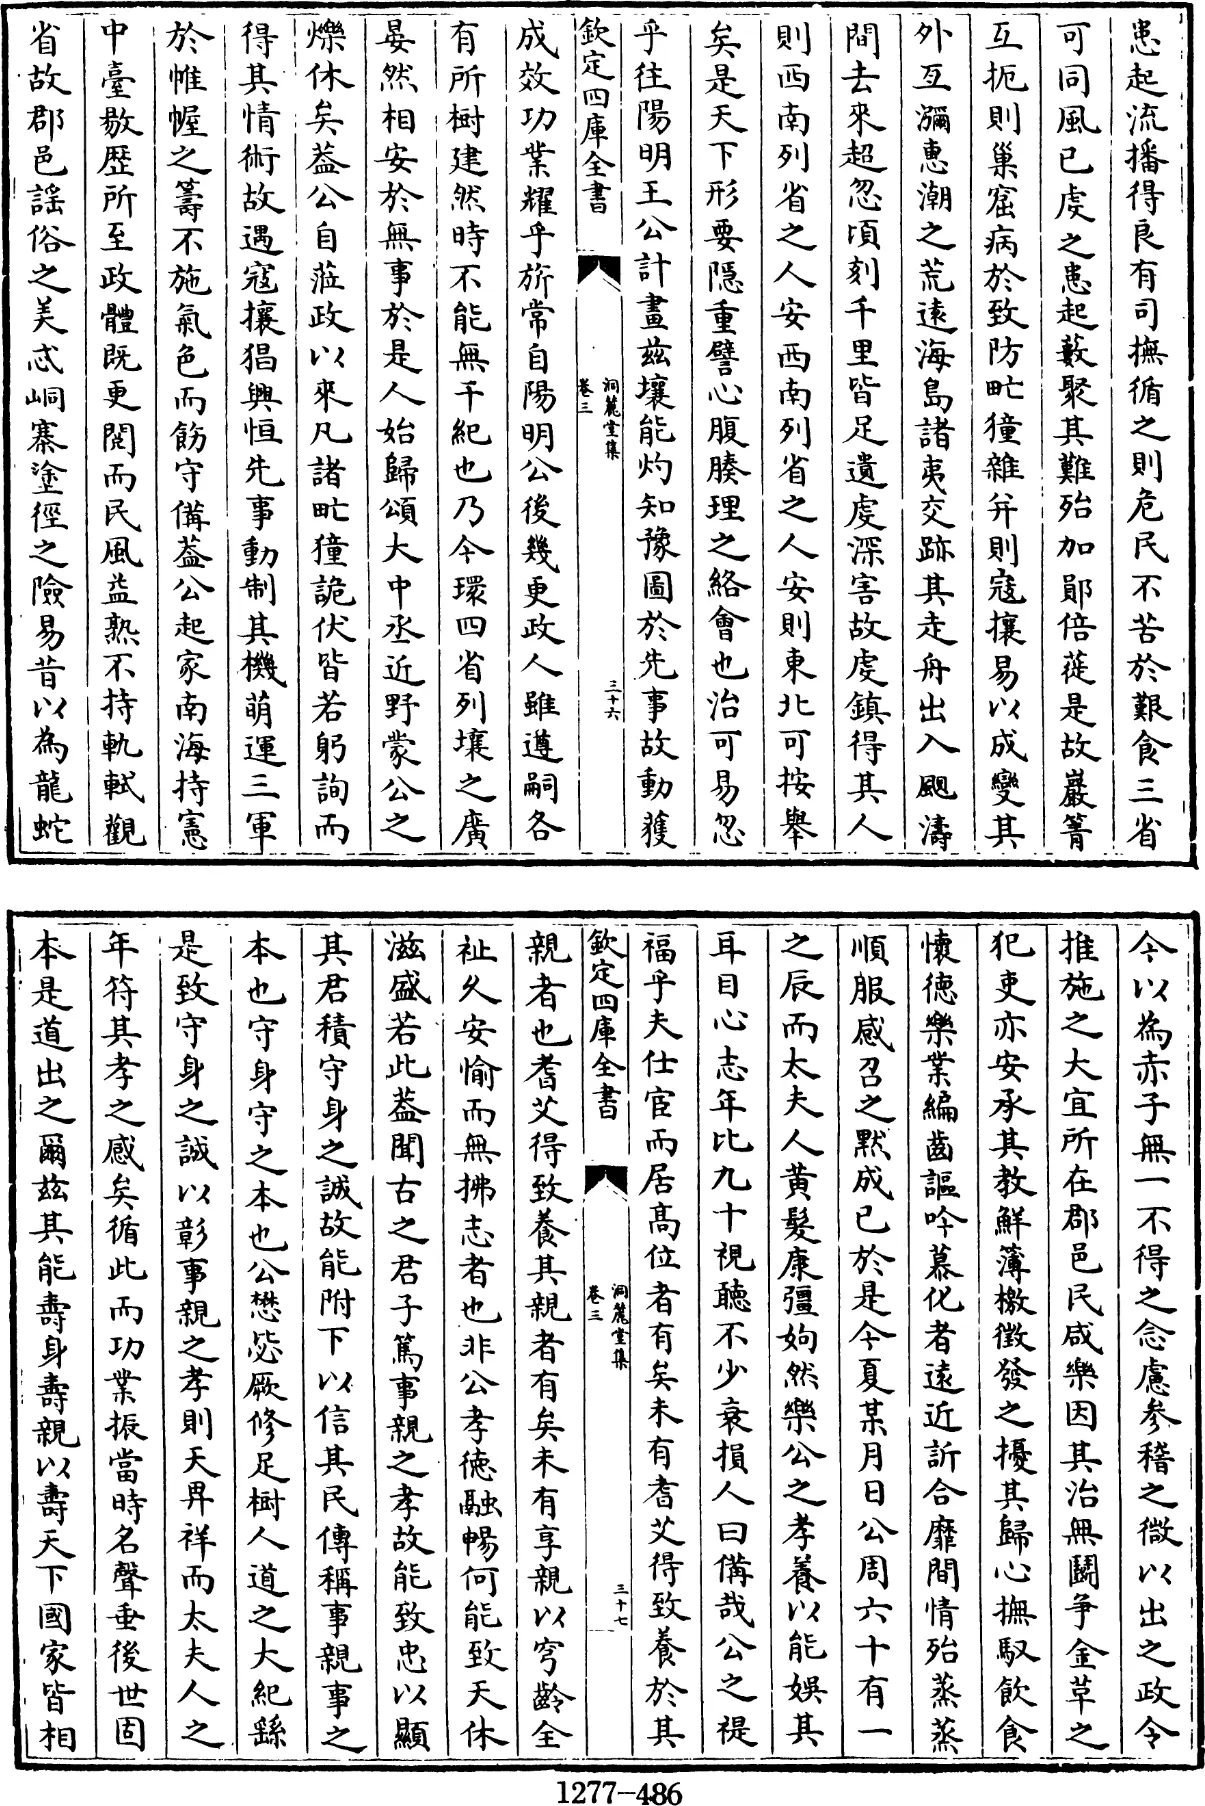 患起流播得良有司撫循之則危民不苦於艱食三省
可同風已虔之患起藪聚其難殆加鄖倍蓰是故巖箐
互扼則巢窟病於致防甿獞雜弁則寇攘易以成變其
外亙瀰惠潮之荒遠海島諸夷交跡其走舟出入颶濤
間去來超忽頃刻千里皆足遺虔深害故虔鎮得其人
則西南列省之人安西南列省之人安則東北可按舉
矣是天下形要隱重譬心腹腠理之絡會也治可易忽
乎往陽明王公計畫茲壤能灼知豫圖於先事故動獲
欽定四庫全書
洞麓堂集
卷三
三十六
成效功業耀乎旂常自陽明公後幾更政人雖遵嗣各
有所樹建然時不能無干紀也乃今環四省列壤之廣
晏然相安於無事於是人始歸頌大中丞近野蒙公之
爍休矣葢公自蒞政以來凡諸甿獞詭伏皆若躬詢而
得其情術故遇寇攘猖興恒先事動制其機萌運三軍
於帷幄之籌不施氣色而飭守備葢公起家南海持憲
中臺敭歷所至政體既更閱而民風益熟不持軌軾觀
省故郡邑謡俗之美忒峒寨塗徑之險易昔以為龍蛇
今以為赤子無一不得之念慮參稽之微以出之政令
推施之大宜所在郡邑民咸樂因其治無鬭争金草之
犯吏亦安承其教鮮簿檄徵發之擾其歸心撫馭飲食
懷德樂業編齒謳吟慕化者遠近訢合靡間情殆蒸蒸
順服感召之黙成已於是今夏某月日公周六十有一
之辰而太夫人黄髮康彊姁然樂公之孝養以能娛其
耳目心志年比九十視聽不少衰損人曰備哉公之禔
福乎夫仕宦而居高位者有矣未有耆艾得致養於其
欽定四庫全書
洞麓堂集
卷三
三十七
親者也耆艾得致養其親者有矣未有享親以穹齡全
祉久安愉而無拂志者也非公孝徳融暢何能致天休
滋盛若此葢聞古之君子篤事親之孝故能致忠以顯
其君積守身之誠故能附下以信其民傳稱事親事之
本也守身守之本也公懋毖厥修足樹人道之大紀繇
是致守身之誠以彰事親之孝則天畀祥而太夫人之
年符其孝之感矣循此而功業振當時名聲垂後世固
本是道出之爾茲其能壽身壽親以壽天下國家皆相
1277-486